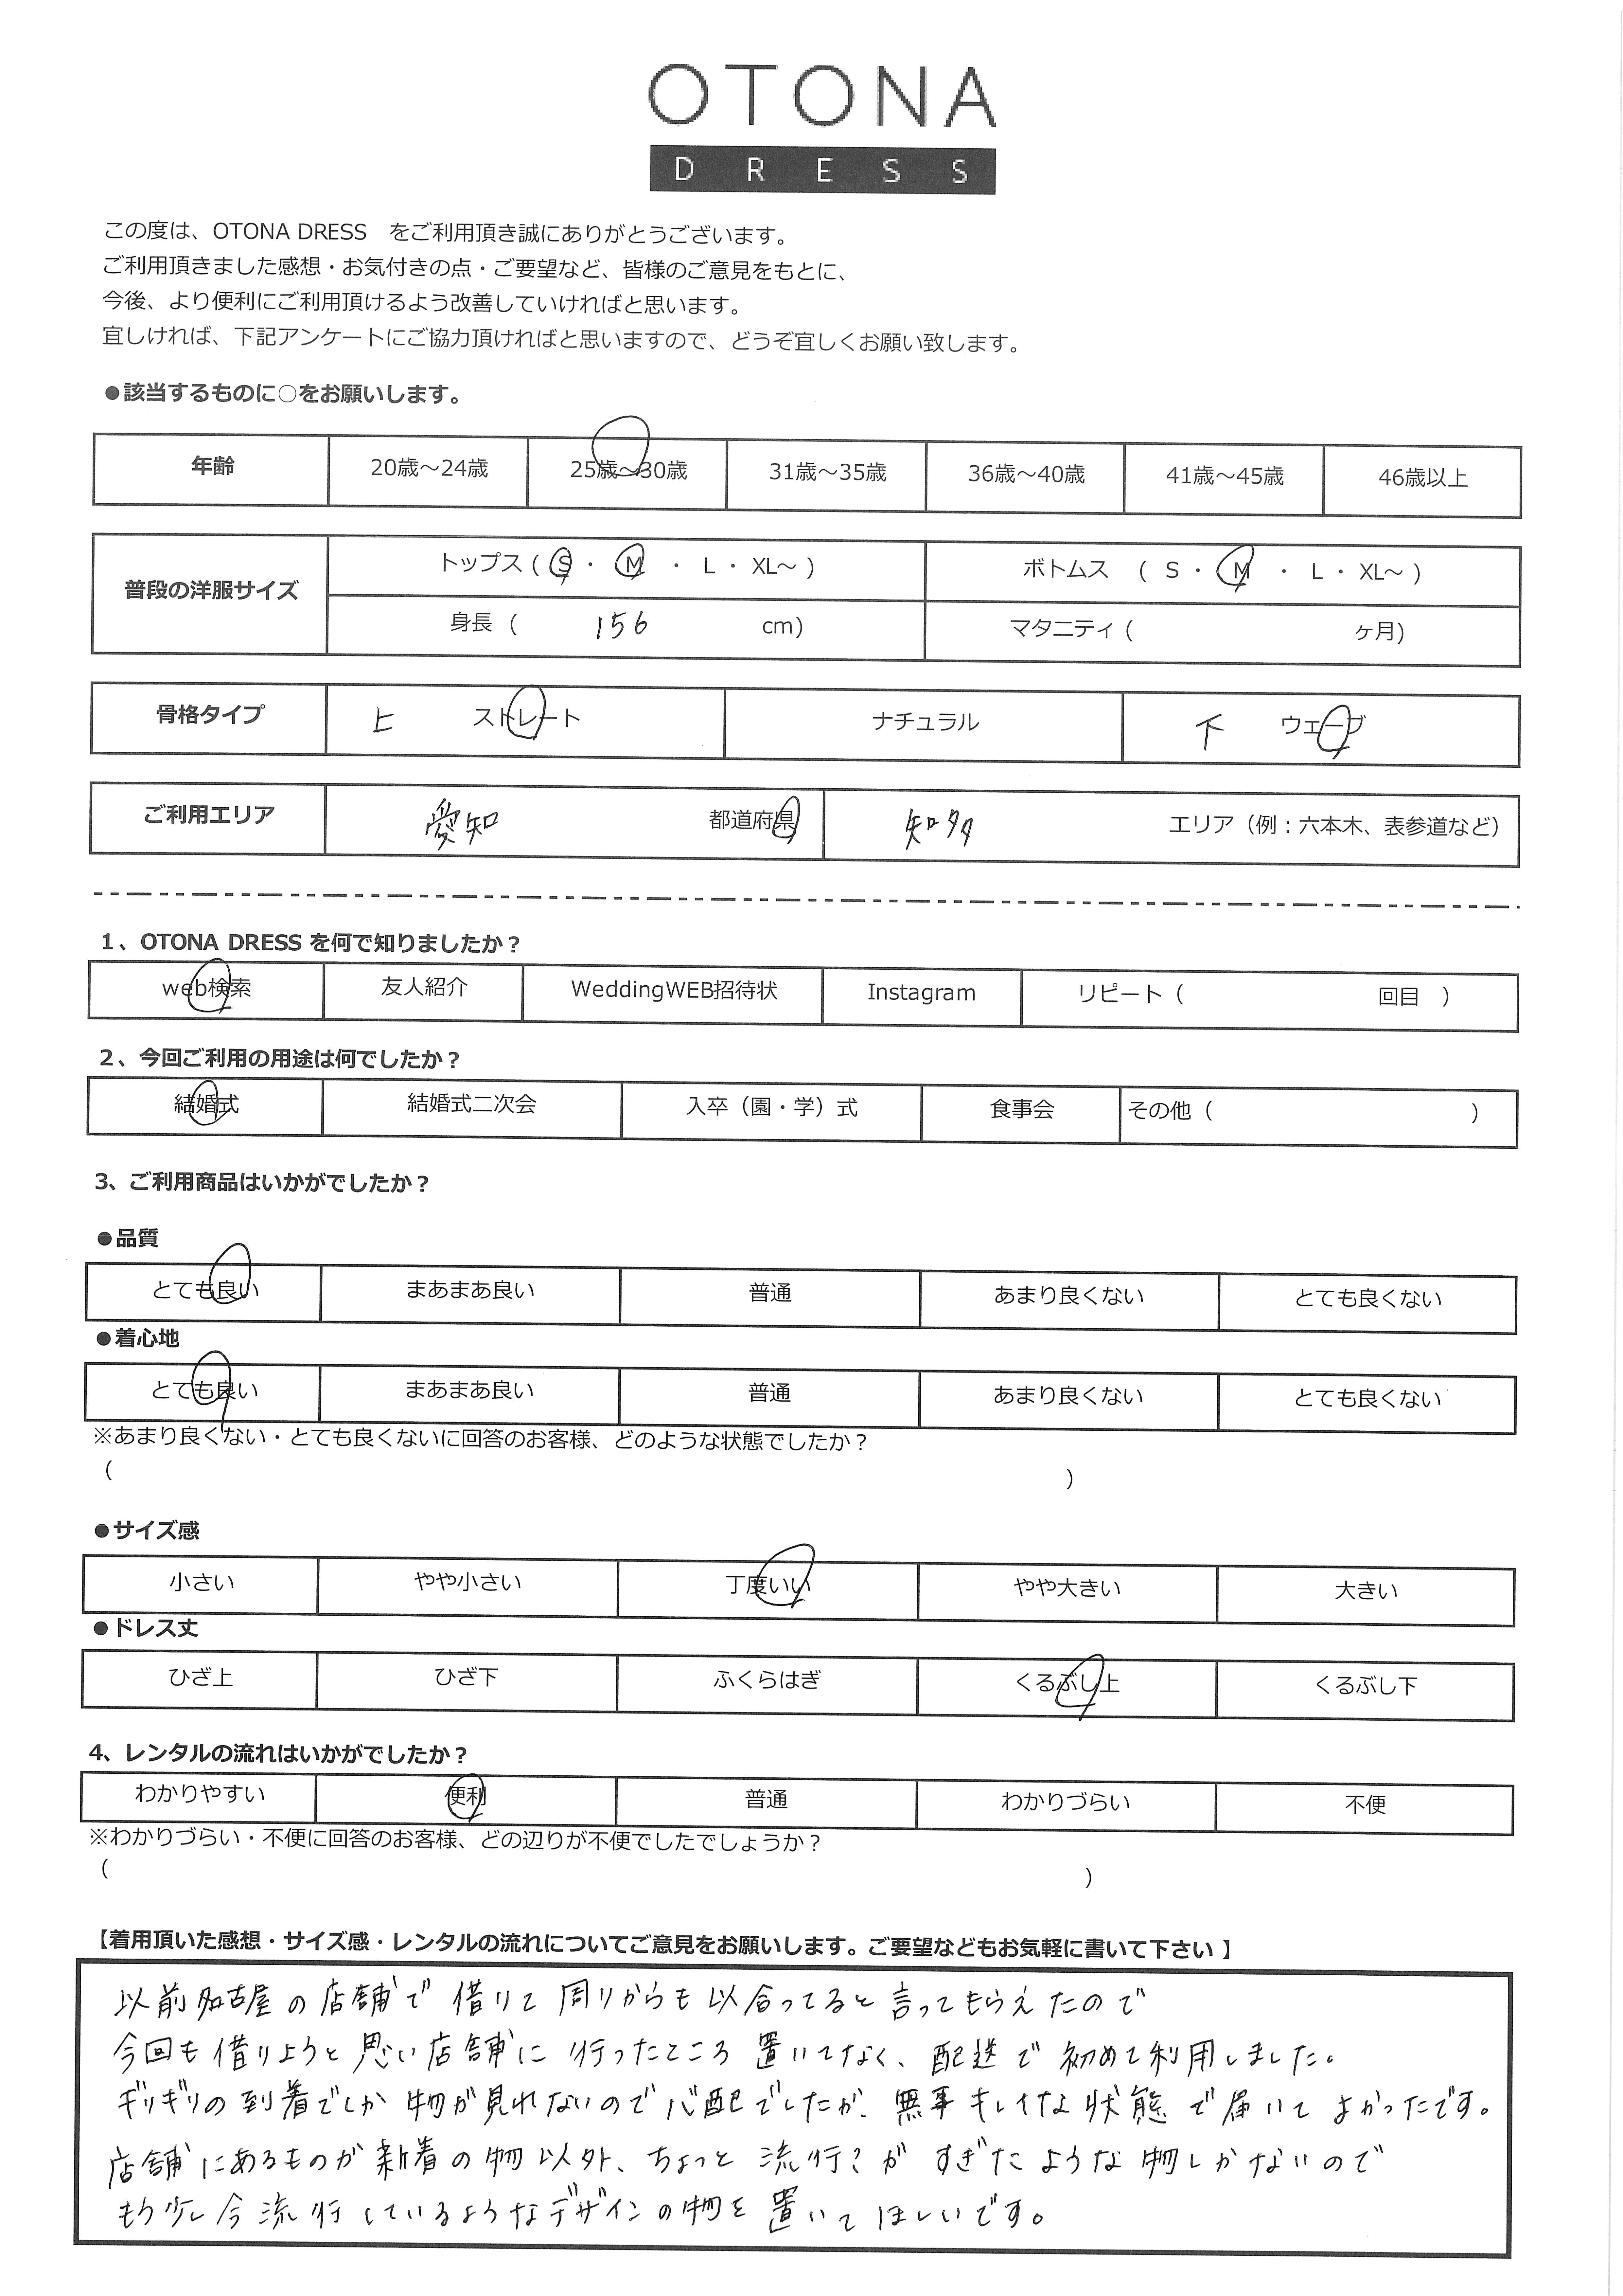 OTONA
DRESS
この度は、OTONA DRESS　をご利用頂き誠にありがとうございます。
ご利用頂きました感想・お気付きの点・ご要望など、皆様のご意見をもとに、
今後、より便利にご利用頂けるよう改善していければと思います。
宜しければ、下記アンケートにご協力頂ければと思いますので、どうぞ宜しくお願い致します。
●該当するものに○をお願いします。
年齢 20歳～24歳 25歳～30歳 31歳～35歳 36歳～40歳 41歳～45歳 46歳以上
普段の洋服サイズ トップス ( S ・ M ・ L ・ XL～ ) ボトムス ( S ・ M ・ L ・ XL～ )
身長 ( 156 cm) マタニティ ( ヶ月)
骨格タイプ 上 ストレート ナチュラル 下 ウェーブ
ご利用エリア 愛知 都道府県 知多 エリア（例：六本木、表参道など）
1、OTONA DRESS を何で知りましたか？
web検索 友人紹介 WeddingWEB招待状 Instagram リピート（ 回目 ）
2、今回ご利用の用途は何でしたか？
結婚式 結婚式二次会 入卒（園・学）式 食事会 その他（ ）
3、ご利用商品はいかがでしたか？
●品質
とても良い まあまあ良い 普通 あまり良くない とても良くない
●着心地
とても良い まあまあ良い 普通 あまり良くない とても良くない
※あまり良くない・とても良くないに回答のお客様、どのような状態でしたか？
（ ）
●サイズ感
小さい やや小さい 丁度いい やや大きい 大きい
●ドレス丈
ひざ上 ひざ下 ふくらはぎ くるぶし上 くるぶし下
4、レンタルの流れはいかがでしたか？
わかりやすい 便利 普通 わかりづらい 不便
※わかりづらい・不便に回答のお客様、どの辺りが不便でしたでしょうか？
（ ）
【着用頂いた感想・サイズ感・レンタルの流れについてご意見をお願いします。ご要望などもお気軽に書いて下さい 】
以前名古屋の店舗で借りて周りからも以合ってると言ってもらえたので
今回も借りようと思い店舗に行ったところ置いてなく、配送で初めて利用しました。
ギリギリの到着でしか物が見れないので心配でしたが、無事キレイな状態で届いてよかったです。
店舗にあるものが新着の物以外、ちょっと流行?がすぎたような物しかないので
もう少し今流行しているようなデザインの物を置いてほしいです。